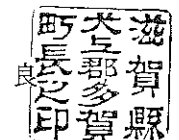 滋賀縣
犬上郡多賀
町長之印
良